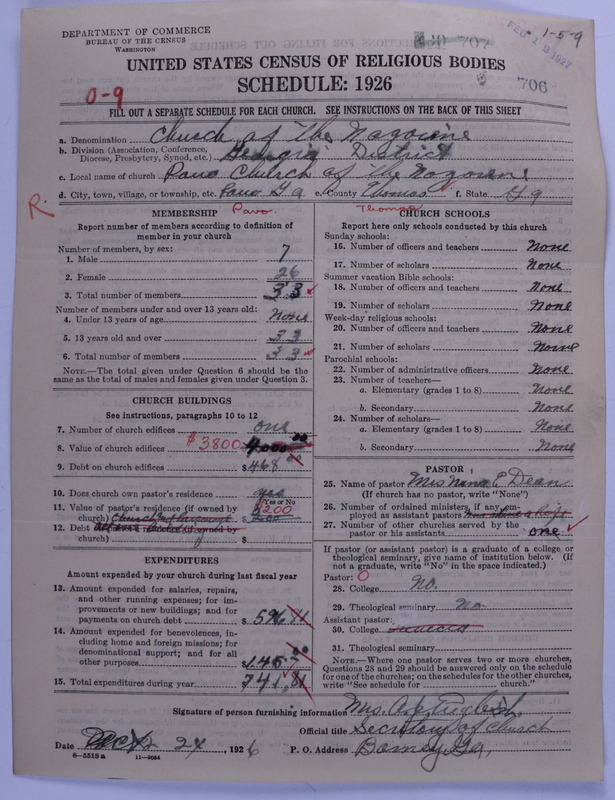 DEPARTMENT OF COMMERCE
BUREAU OF THE CENSUS
WASHINGTON
707
1-5-9
706
UNITED STATES CENSUS OF RELIGIOUS BODIES
SCHEDULE: 1926
0-9
FILL OUT A SEPARATE SCHEDULE FOR EACH CHURCH. SEE INSTRUCTIONS ON THE BACK OF THIS SHEET
a. Denomination Church of The Nazorine
b. Division (Association, Conference, Diocese, Presbytery, Synod, etc.) Georgia District
c. Local name of church Pavo Church of the Nazorene
d. City, town, village, or township, etc. Pavo Ga e. County Thomas f. State Ga
R.
Pavo
Thomas
MEMBERSHIP
Report number of members according to definition of member in your church
Number of members, by sex:
1. Male 7
2. Female 26
3. Total number of members 33
Number of members under and over 13 years old:
4. Under 13 years of age None
5. 13 years old and over 33
6. Total number of members 33
NOTE.—The total given under Question 6 should be the same as the total of males and females given under Question 3.
CHURCH BUILDINGS
See instructions, paragraphs 10 to 12
7. Number of church edifices one
8. Value of church edifices $3800 4,000 00
9. Debt on church edifices $468 00
10. Does church own pastor's residence yes
Yes or No
11. Value of pastor's residence (if owned by church) $ 200
12. Debt (if owned by church) $ 0
EXPENDITURES
Amount expended by your church during last fiscal year
13. Amount expended for salaries, repairs, and other running expenses; for improvements or new buildings; and for payments on church debt $ 596 81
14. Amount expended for benevolences, including home and foreign missions; for denominational support; and for all other purposes $145 00
15. Total expenditures during year $741.81
CHURCH SCHOOLS
Report here only schools conducted by this church
Sunday schools:
16. Number of officers and teachers None
17. Number of scholars None
Summer vacation Bible schools:
18. Number of officers and teachers None
19. Number of scholars None
Week-day religious schools:
20. Number of officers and teachers None
21. Number of scholars None
Parochial schools:
22. Number of administrative officers None
23. Number of teachers—
a. Elementary (grades 1 to 8) None
b. Secondary None
24. Number of scholars—
a. Elementary (grades 1 to 8) None
b. Secondary None
PASTOR
25. Name of pastor Mrs Nena E Dean
(If church has no pastor, write "None")
26. Number of ordained ministers, if any, employed as assistant pastors
27. Number of other churches served by the pastor or his assistants one
If pastor (or assistant pastor) is a graduate of a college or theological seminary, give name of institution below. (If not a graduate, write "No" in the space indicated.)
Pastor: 0
28. College No.
29. Theological seminary No.
Assistant pastor:
30. College
31. Theological seminary
NOTE.—Where one pastor serves two or more churches, Questions 28 and 29 should be answered only on the schedule for one of the churches; on the schedules for the other churches, write "See schedule for church."
Signature of person furnishing information Mrs.
Official title Secretary of Church
Date 24, 1926 P. O. Address Barney Ga,
8—5518a 11—9054